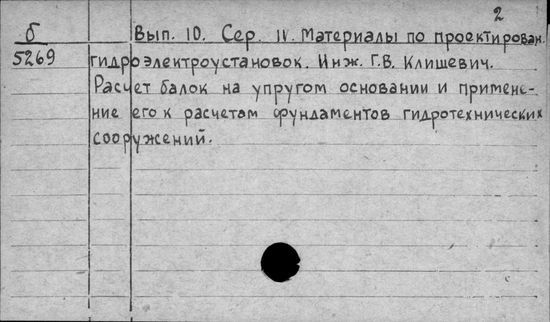 2
б
5269
Вып. 10. Сер. IV. Материалы по проектирован.
гидроэлектроустановок. Инж. Г.В. Клишевич.
Расчет балок на упругом основании и примене-
ние его к расчетам фундаментов гидротехнических
сооружений.